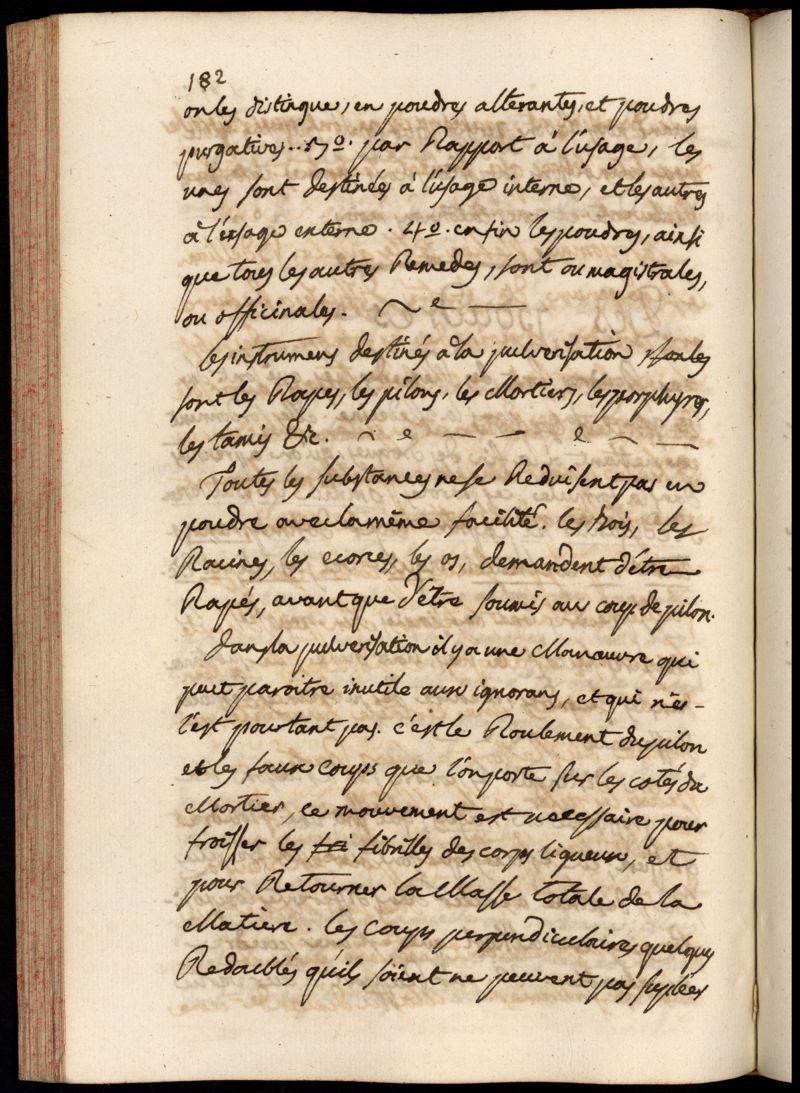 182
on les distingue, en poudres alterantes, et poudres
purgatives.. 3º. par Rapport à l'usage, les
unes sont destinées à l'usage interne, et les autres
à l'usage externe. 4º. enfin les poudres, ainsi
que tous les autres Remedes, sont ou magistrales,
ou officinales.
les instrumens destinés à la pulverisation
sont les Rapes, les pilons, les Mortiers, les porphyres,
les tamis &c.
Toutes les substances ne se Reduisent pas en
poudre avec la même facilité. les bois, les
Racines, les ecorces, les os, demandent d'être
Rapés, avant que d'être soumis aux coups de pilon.
dans la pulverisation il y a une Manœuvre qui
peut paroitre inutile aux ignorans, et qui ne
l'est pourtant pas. c'est le Roulement du pilon
et les faux coups que l'on porte sur les cotés du
Mortier, ce mouvement est necessaire pour
froisser les fibrilles des corps ligneux, et
pour Retourner la Masse totale de la
Matiere. les coups perpendiculaires quelques
Redoublés qu'ils soient ne peuvent pas supléer